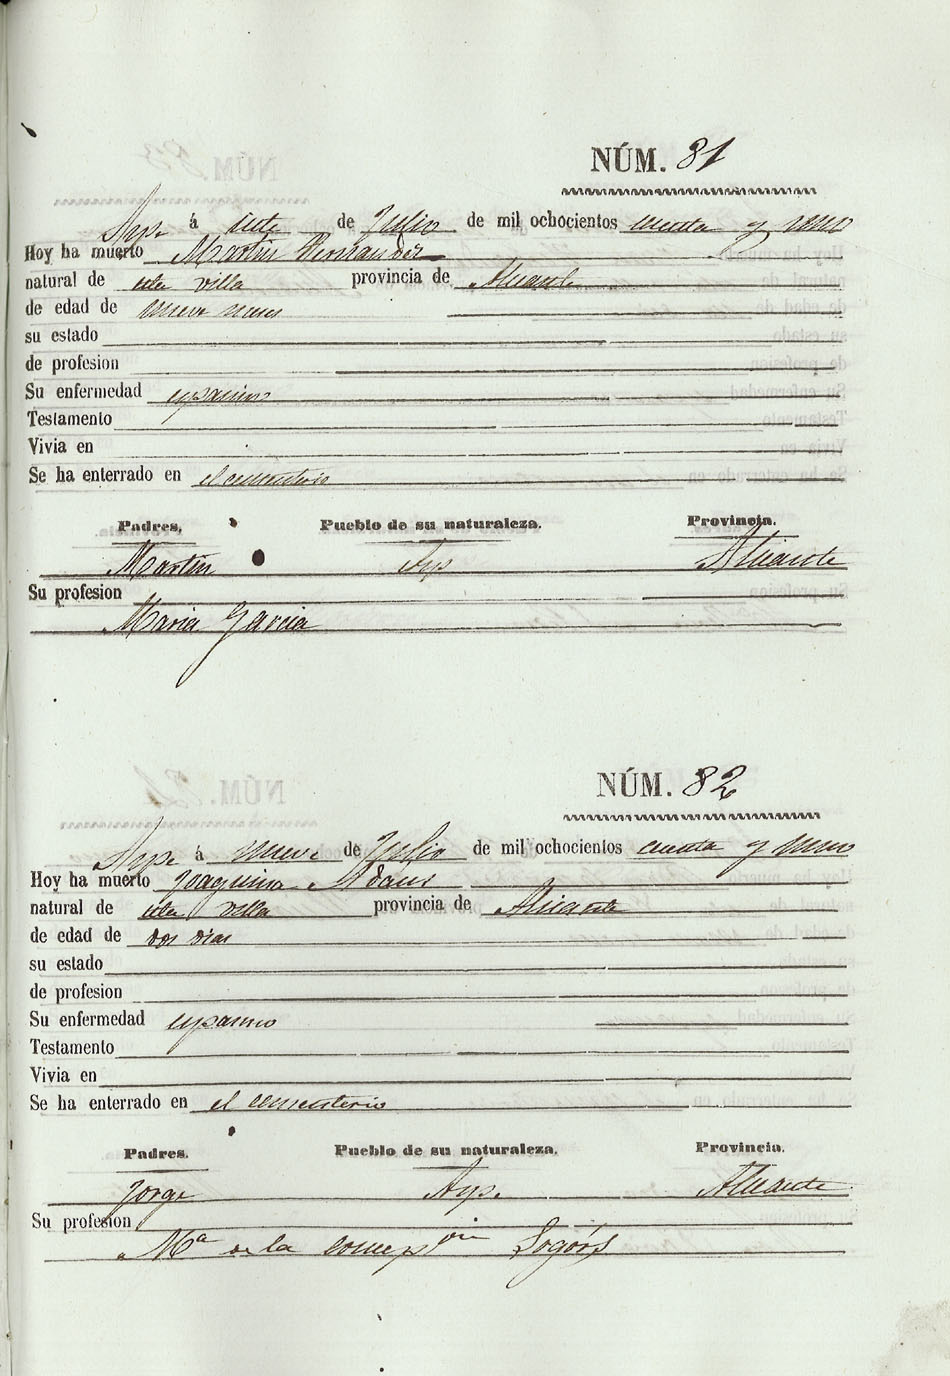 NÚM. 81
Aspe á siete de Julio de mil ochocientos cuenta y uno
Hoy ha muerto Martin Hernandez
natural de esta villa provincia de Alicante
de edad de nueve meses
su estado
de profesion
Su enfermedad espasmo
Testamento
Vivia en
Se ha enterrado en el cementerio
Padres. Pueblo de su naturaleza. Provincia.
Martin Asp Alicante
Su profesion
Maria Garcia
NÚM. 82
Aspe á nueve de Julio de mil ochocientos cuenta y uno
Hoy ha muerto Joaquina
natural de esta villa provincia de Alicante
de edad de dos dias
su estado
de profesion
Su enfermedad espasmo
Testamento
Vivia en
Se ha enterrado en el cementerio
Padres. Pueblo de su naturaleza. Provincia.
Jorge Asp. Alicante
Su profesion
Mª de la concepcion